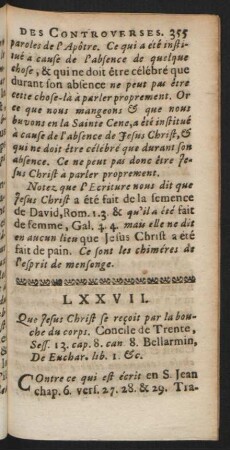 DES CONTROVERSES. 355
paroles de l'Apôtre. Ce qui a été insti-
tué à cause de l'absence de quelque
chose, & qui ne doit être célébré que
durant son absence ne peut pas être
cette chose-là à parler proprement. Or
ce que nous mangeons & que nous
buvons en la Sainte Cene, a été institué
à cause de l'absence de Jesus Christ, &
qui ne doit être célébré que durant son
absence. Ce ne peut pas donc être Je-
sus Christ à parler proprement.
Notez que l'Ecriture nous dit que
Jesus Christ a été fait de la semence
de David, Rom. 1. 3. & qu'il a été fait
de femme, Gal. 4. 4. mais elle ne dit
en aucun lieu que Jesus Christ a été
fait de pain. Ce sont les chiméres de
l'esprit de mensonge.
LXXVII.
Que Jesus Christ se reçoit par la bou-
che du corps. Concile de Trente,
Sess. 13. cap. 8. can 8. Bellarmin,
De Euchar. lib. 1. &c.
COntre ce qui est écrit en S. Jean
chap. 6. vers. 27. 28. & 29. Tra-